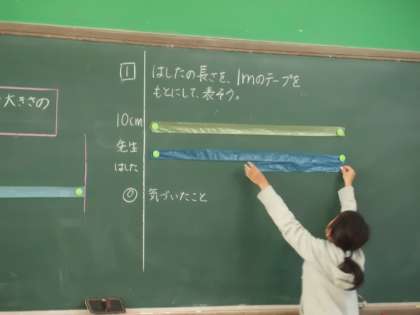 大きさの
1 はしたの長さを、1mのテープを
もとにして、表そう。
10cm
先生
はした
気づいたこと